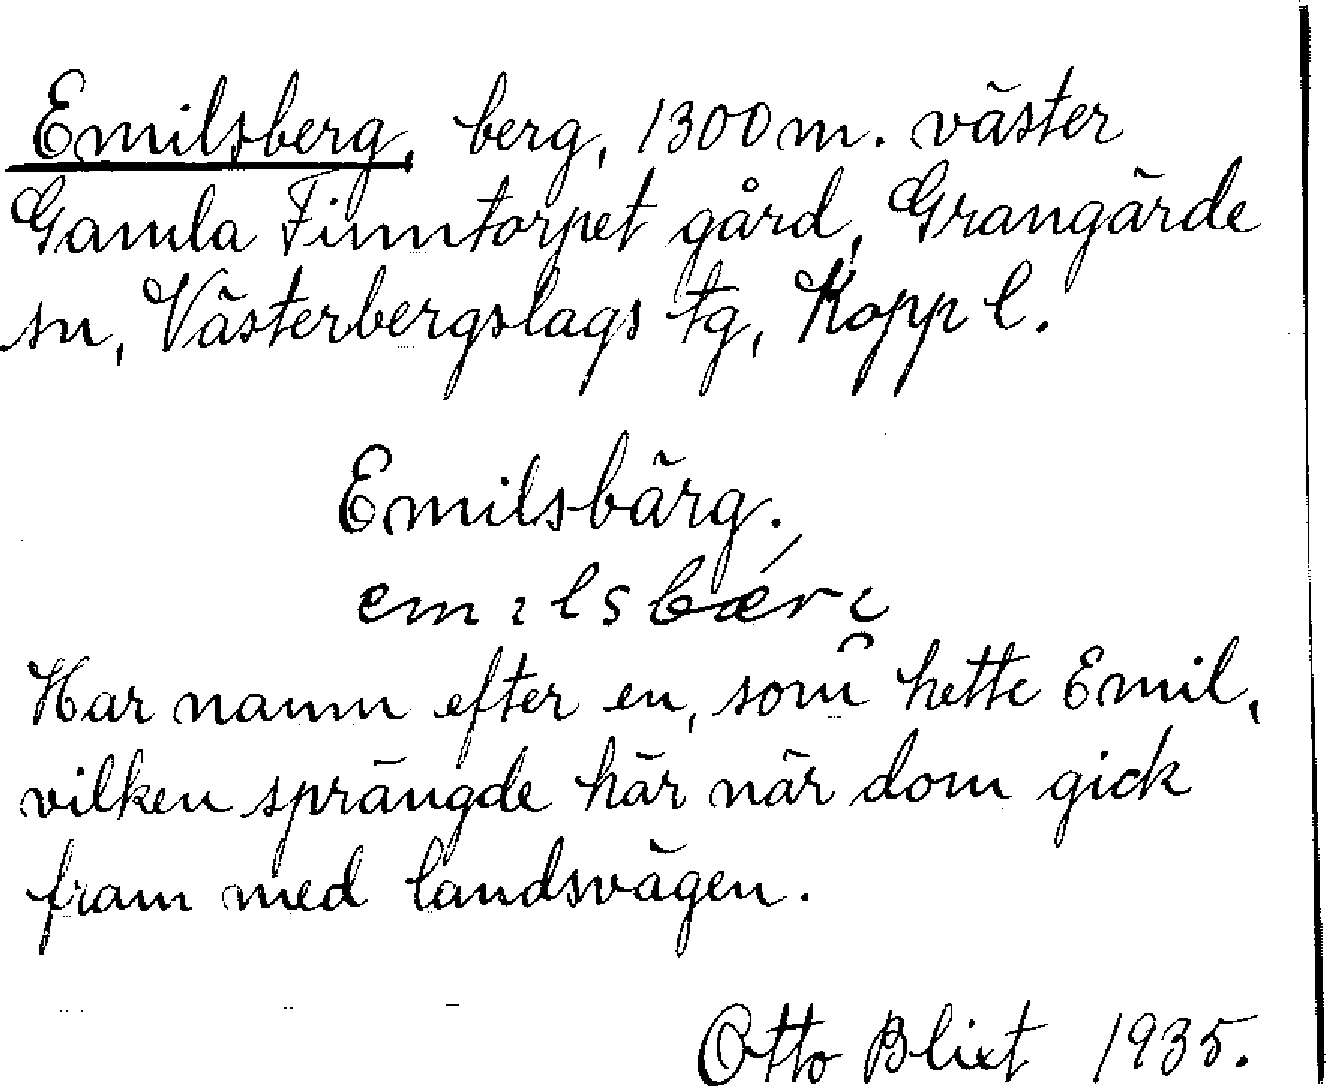 Emilsberg, berg, 1300 m. väster
Gamla Finntorpet gård, Grangärde
sn, Västerbergslags tg, Kopp l.
Emilsbärg.
Har namn efter en, som hette Emil,
vilken sprängde här när dom gick
fram med landsvägen.
Otto Blixt 1935.